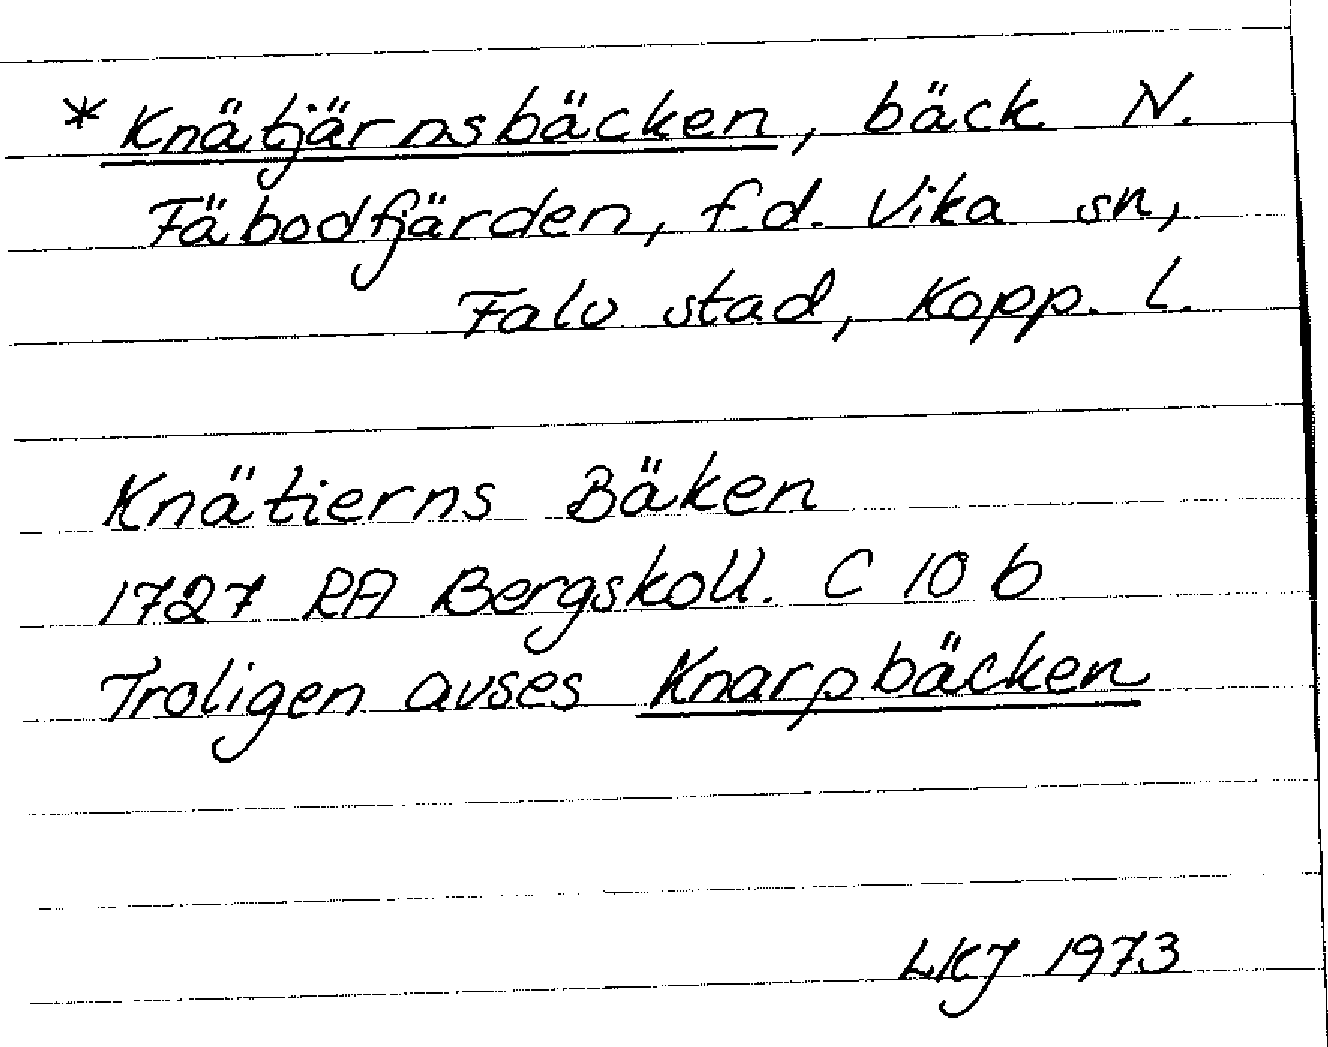 * Knätjärnsbäcken, bäck N.
Fäbodfjärden, f.d. Vika sn,
Falu stad, Kopp. L.
Knätierns Bäken
1727 RA Bergskoll. C 10 b
Troligen avses Knarpbäcken
LKJ 1973